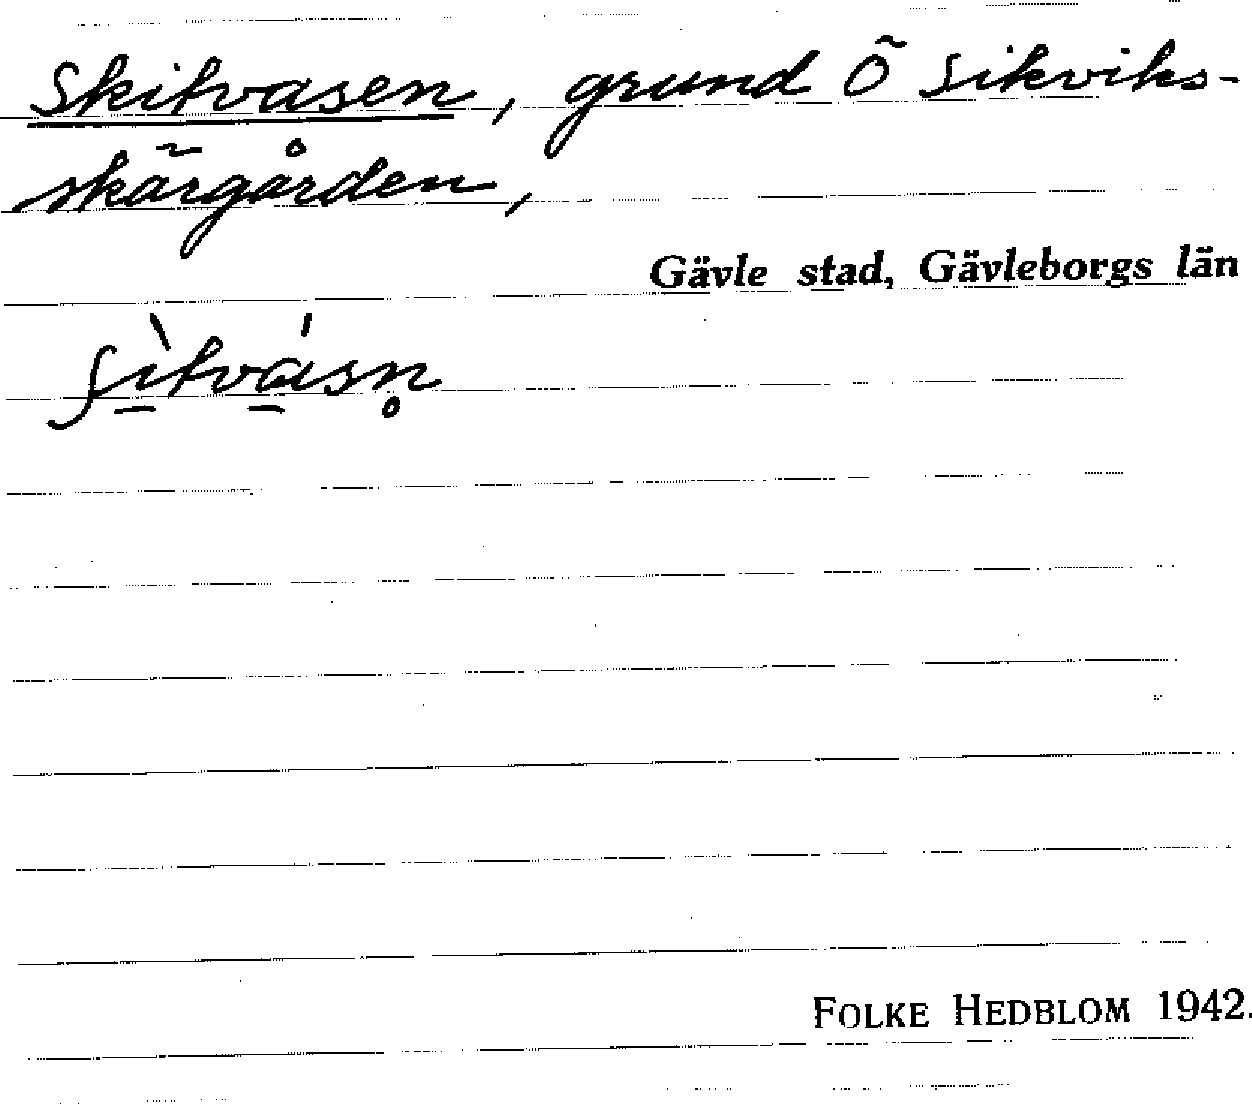 Skitvasen, grund Ö Sikviks-
skärgården,
Gävle stad, Gävleborgs län
ʃı̱̀tvá̱sn̥
FOLKE HEDBLOM 1942.